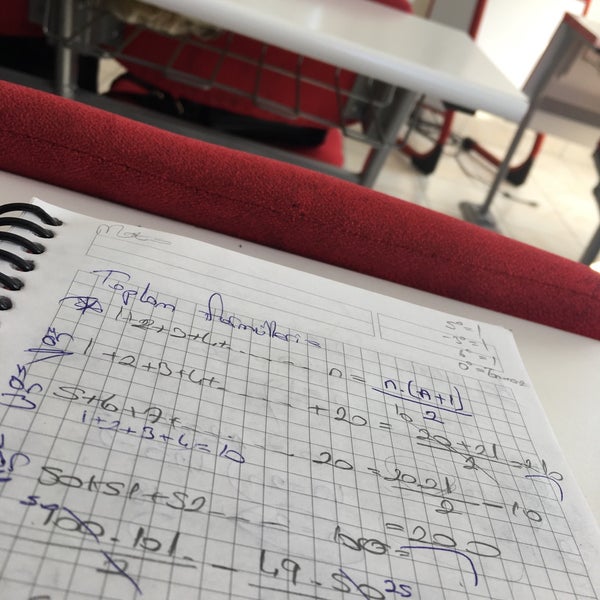 Mat
5⁰=1
-5⁰=1
6⁰=1
Toplam formülleri
1+2+3+4+........ n = n.(n+1) / 2
ÖR/ 1+2+3+4+........ +20 = 20+21 / 2 = 210
ÖR/ 5+6+7+........ 20 = 20.21 / 2 - 10
1+2+3+4=10
= 200
50+51+52.... 100 =
100.101 / 2 - 49.50
25